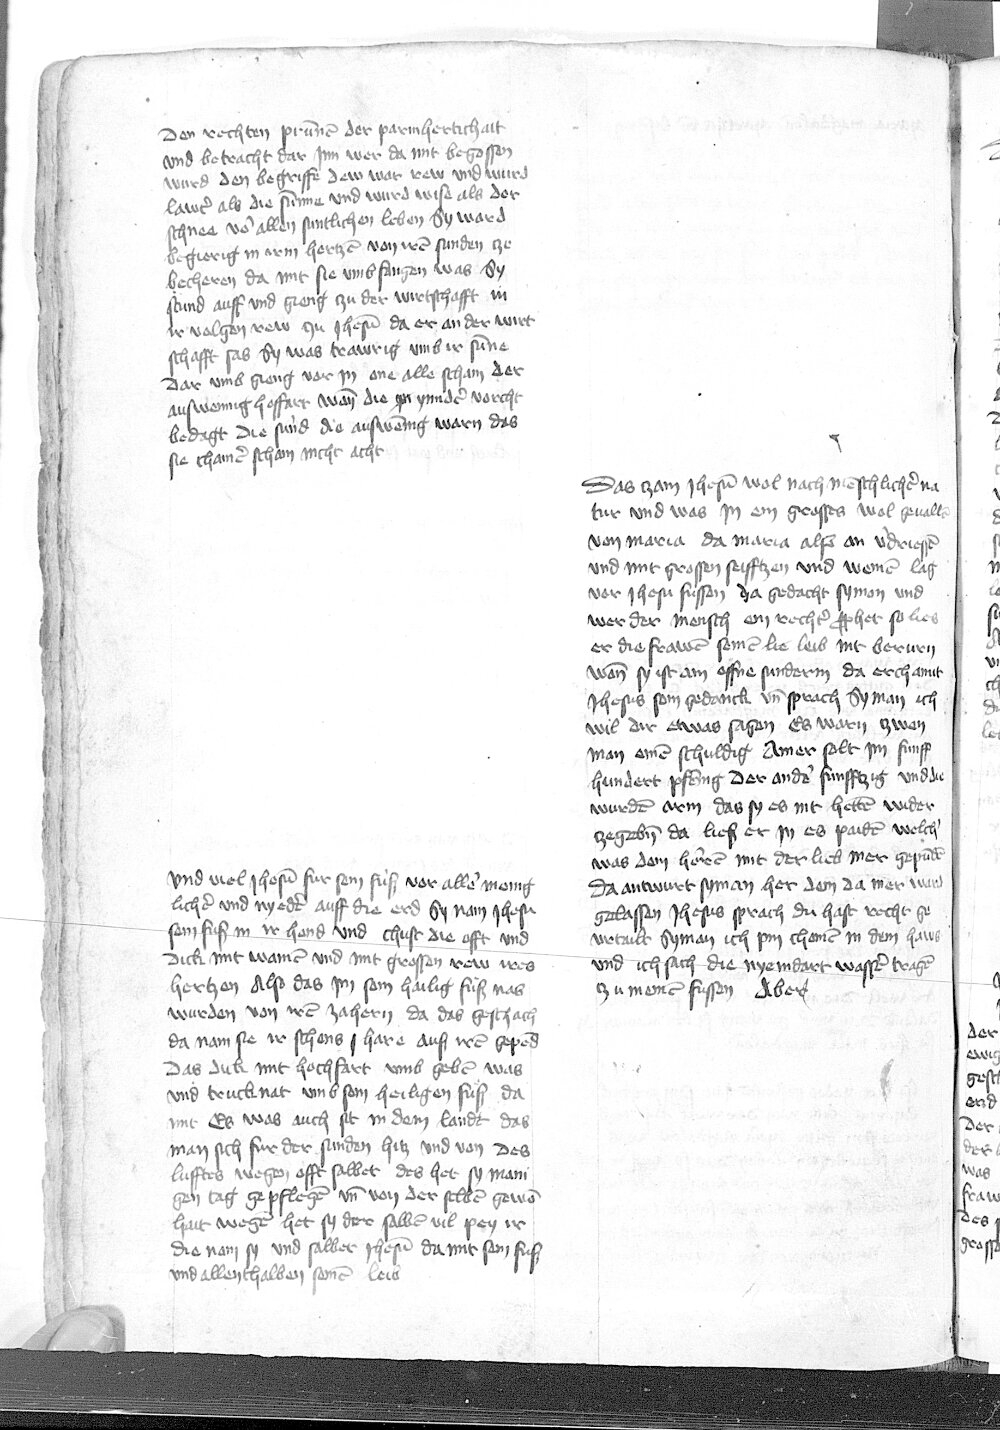 Den rechten prūnē der parmhertichait
vnd betracht dar Inn wer da mit begossen
wurd den begriffe dew war rew vnd wurd
lawt̄ als die sūnne vnd wurd wiſs als der
schnee vō allen suntlichen leben Sy ward
begierig in irm hertzē von irē sunden ze
becheren da mit sie vmbfangen was Sy
stund auff vnd gieng zu der wirtschafft in
ir volgen rew zu Jhesū da er an der wirt
schafft sas Sy was trawrig vmb ir sūne
Dar vmb gieng vor in one alle scham der
auswennig hoffart wan̄ die ynnder vorcht
bedagt Die sund die auswenīg warn das
sie chainē scham nicht acht
Vnd viel Jhesū fur sein fuſs vor allē menig
lichē vnd nydē auff die erd Sy nam Jhesu
sein fuſs in ir hend vnd chust die offt vnd
Dick mit wainē vnd mit grossen rew ires
hertzen Also das Im sein hailig fuſs nas
wurden von irē zahern da das geschach
da nam sie ir schons hare auſs irē gepēd
Das dick mit hochfart vmb gebē was
vnd trucknat vmb sein heiligen fuſs da
mit Es was auch sit in dem landt das
man sich fur der sunden hitz vnd von des
lufftes wegen offt salbet des het sy mani
gen tag gepflegē vn̄ von der selbē gewō
hait wegē het sy der salbē vil pey ir
die nam sy vnd salbet Jhesū da mit sein fuſs
vnd allenthalben seinē leib
Das czam Jhesū wol nach mēschlichē na
tur vnd was In ein grosses wol geuallē
von maria da maria also an v'driessē
vnd mit grossen seufftzen vnd weinē lag
vor Jhesu fussen da gedacht symon vnd
wer der mensch ein recht' ꝓphet so lies
er die frawē seinē lie leib nit berurn
wan̄ sy ist ain offne sunderin da erchant
Jhesus sein gedanck vn̄ sprach Symon ich
wil dir etwas sagen Es warn zwen
man einē schuldig Ainer solt im funff
hundert pfēnig Der ander funfftzig vnd die
wurdē arm das sy es nit hettē wider
zegebn̄ da lieſs er in es paidē welch'
was dem herrē mit der lieb mer gepūdē
Da antwurt symon her dem da mer ward
gelassen Jhesus sprach du hast recht ge
urtailt Symon ich pin chomē in dem haws
vnd ich sach die nyemdart wasser tragē
zu meinē fussen Aber